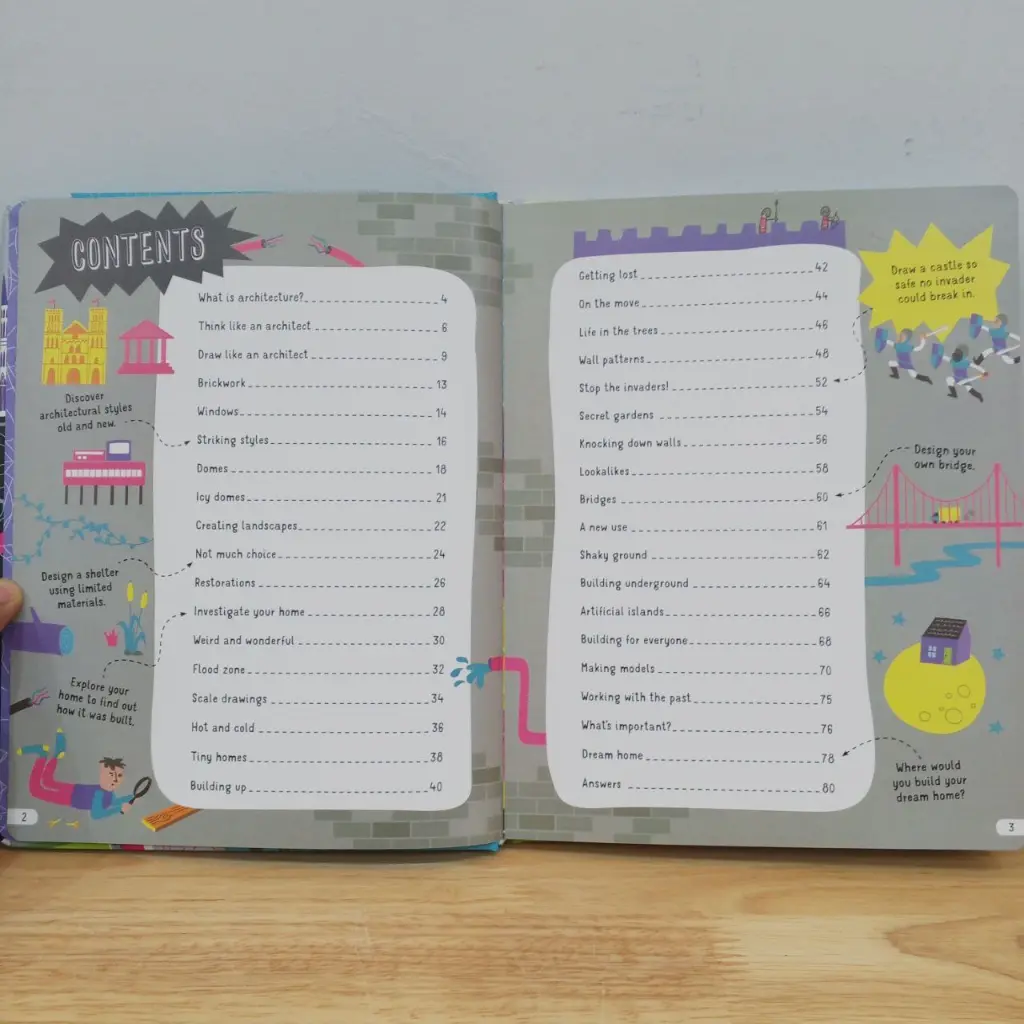 CONTENTS
What is architecture? 4
Think like an architect 6
Draw like an architect 9
Brickwork 13
Windows 14
Striking styles 16
Domes 18
Icy domes 21
Creating landscapes 22
Not much choice 24
Restorations 26
Investigate your home 28
Weird and wonderful 30
Flood zone 32
Scale drawings 34
Hot and cold 36
Tiny homes 38
Building up 40
Discover
architectural styles
old and new.
Design a shelter
using limited
materials.
Explore your
home to find out
how it was built.
2
Getting lost 42
On the move 44
Life in the trees 46
Wall patterns 48
Stop the invaders! 52
Secret gardens 54
Knocking down walls 56
Lookalikes 58
Bridges 60
A new use 61
Shaky ground 62
Building underground 64
Artificial islands 66
Building for everyone 68
Making models 70
Working with the past 75
What's important? 76
Dream home 78
Answers 80
Draw a castle so
safe no invader
could break in.
Design your
own bridge.
Where would
you build your
dream home?
3